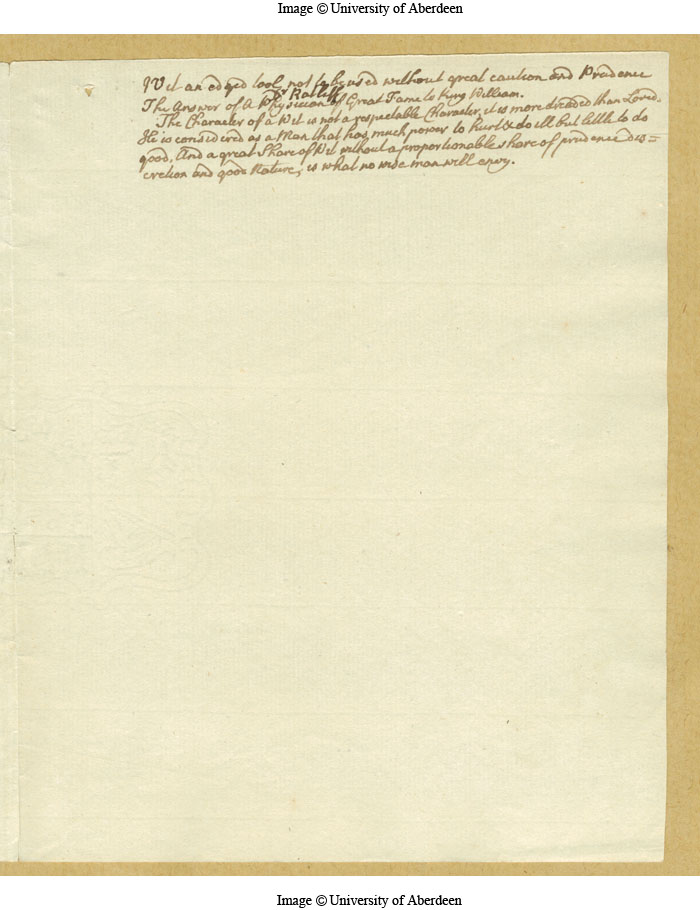 Image © University of Aberdeen
Wit an edged tool not to be used without great caution and Prudence
Dr Ratliff
The Answer of A Physician of Great Fame to King William.
The Character of a Wit is not a respectable Character, it is more dreaded than Loved.
He is considered as a Man that has much power to hurt & do ill but little to do
good, And a great Share of Wit without a proportionable share of prudence dis=
cretion and good Nature, is what no wise man will envy.
Image © University of Aberdeen